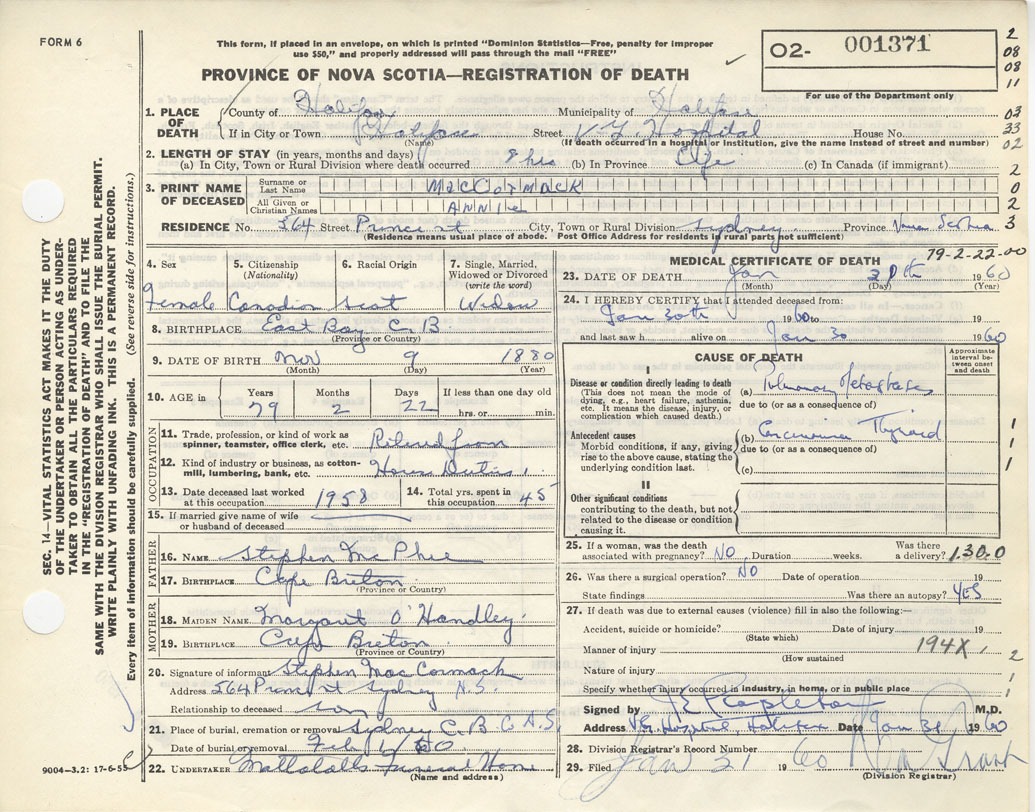 FORM 6
This form, if placed in an envelope, on which is printed "Dominion Statistics—Free, penalty for improper
use $50," and properly addressed will pass through the mail "FREE"
O2- 001371
PROVINCE OF NOVA SCOTIA—REGISTRATION OF DEATH
For use of the Department only
2
08
08
11
03
33
02
2
0
2
3
1. PLACE OF DEATH
County of Halifax Municipality of Halifax
If in City or Town Halifax Street V.G. Hospital House No.
(Name) (If death occurred in a hospital or institution, give the name instead of street and number)
2. LENGTH OF STAY (in years, months and days)
(a) In City, Town or Rural Division where death occurred 8 hrs (b) In Province Life (c) In Canada (if immigrant)
3. PRINT NAME OF DECEASED
Surname or Last Name MacCormack
All Given or Christian Names ANNIE
RESIDENCE No. 564 Street Prince st City, Town or Rural Division Sydney Province Nova Scotia
(Residence means usual place of abode. Post Office Address for residents in rural parts not sufficient)
SEC. 14—VITAL STATISTICS ACT MAKES IT THE DUTY
OF THE UNDERTAKER OR PERSON ACTING AS UNDER-
TAKER TO OBTAIN ALL THE PARTICULARS REQUIRED
IN THE "REGISTRATION OF DEATH" AND FILE THE
SAME WITH THE DIVISION REGISTRAR WHO SHALL ISSUE THE BURIAL PERMIT.
WRITE PLAINLY WITH UNFADING INK. THIS IS A PERMANENT RECORD.
Every item of information should be carefully supplied. (See reverse side for instructions.)
4. Sex Female
5. Citizenship (Nationality) Canadian
6. Racial Origin Scot
7. Single, Married, Widowed or Divorced (write the word) Widow
8. BIRTHPLACE East Bay C.B.
(Province or Country)
9. DATE OF BIRTH Nov 9 1880
(Month) (Day) (Year)
10. AGE in Years 79 Months 2 Days 22 If less than one day old hrs. or min.
OCCUPATION
11. Trade, profession, or kind of work as
spinner, teamster, office clerk, etc. Retired from
12. Kind of industry or business, as cotton-
mill, lumbering, bank, etc. House Duties
13. Date deceased last worked at this occupation 1958
14. Total yrs. spent in this occupation 45
15. If married give name of wife
or husband of deceased
FATHER
16. NAME Stephen Mc Phee
17. BIRTHPLACE Cape Breton
(Province or Country)
MOTHER
18. MAIDEN NAME Margaret O'Handley
19. BIRTHPLACE Cape Breton
(Province or Country)
20. Signature of informant Stephen MacCormack
Address 564 Prince st Sydney N.S.
Relationship to deceased son
21. Place of burial, cremation or removal Sydney C.B.
Date of burial or removal Feb 60
22. UNDERTAKER Funeral Home
(Name and address)
9004-3.2: 17-6-55
MEDICAL CERTIFICATE OF DEATH 79-2-22-00
23. DATE OF DEATH Jan 30th 1960
(Month) (Day) (Year)
24. I HEREBY CERTIFY that I attended deceased from:
Jan 30th 1960 to 19
and last saw h alive on Jan 30 1960
CAUSE OF DEATH
Approximate interval between onset and death
I
Disease or condition directly leading to death
(This does not mean the mode of
dying, e.g., heart failure, asthenia,
etc. It means the disease, injury, or
complication which caused death.)
(a) Pulmonary Metastases
due to (or as a consequence of)
Antecedent causes
Morbid conditions, if any, giving
rise to the above cause, stating the
underlying condition last.
(b) Carcinoma Thyroid
due to (or as a consequence of)
(c)
II
Other significant conditions
contributing to the death, but not
related to the disease or condition
causing it.
1
1
1
25. If a woman, was the death
associated with pregnancy? NO Duration weeks. Was there a delivery? 130.0
26. Was there a surgical operation? NO Date of operation 19
State findings Was there an autopsy? YES
27. If death was due to external causes (violence) fill in also the following:
Accident, suicide or homicide? Date of injury 19
(State which)
Manner of injury 194X 1
(How sustained)
2
Nature of injury
1
Specify whether injury occurred in industry, in home, or in public place
1
Signed by M.D.
Address V.G. Hospital, Halifax Date Jan 30 1960
28. Division Registrar's Record Number
29. Filed Jan 31 1960 Grant
(Division Registrar)